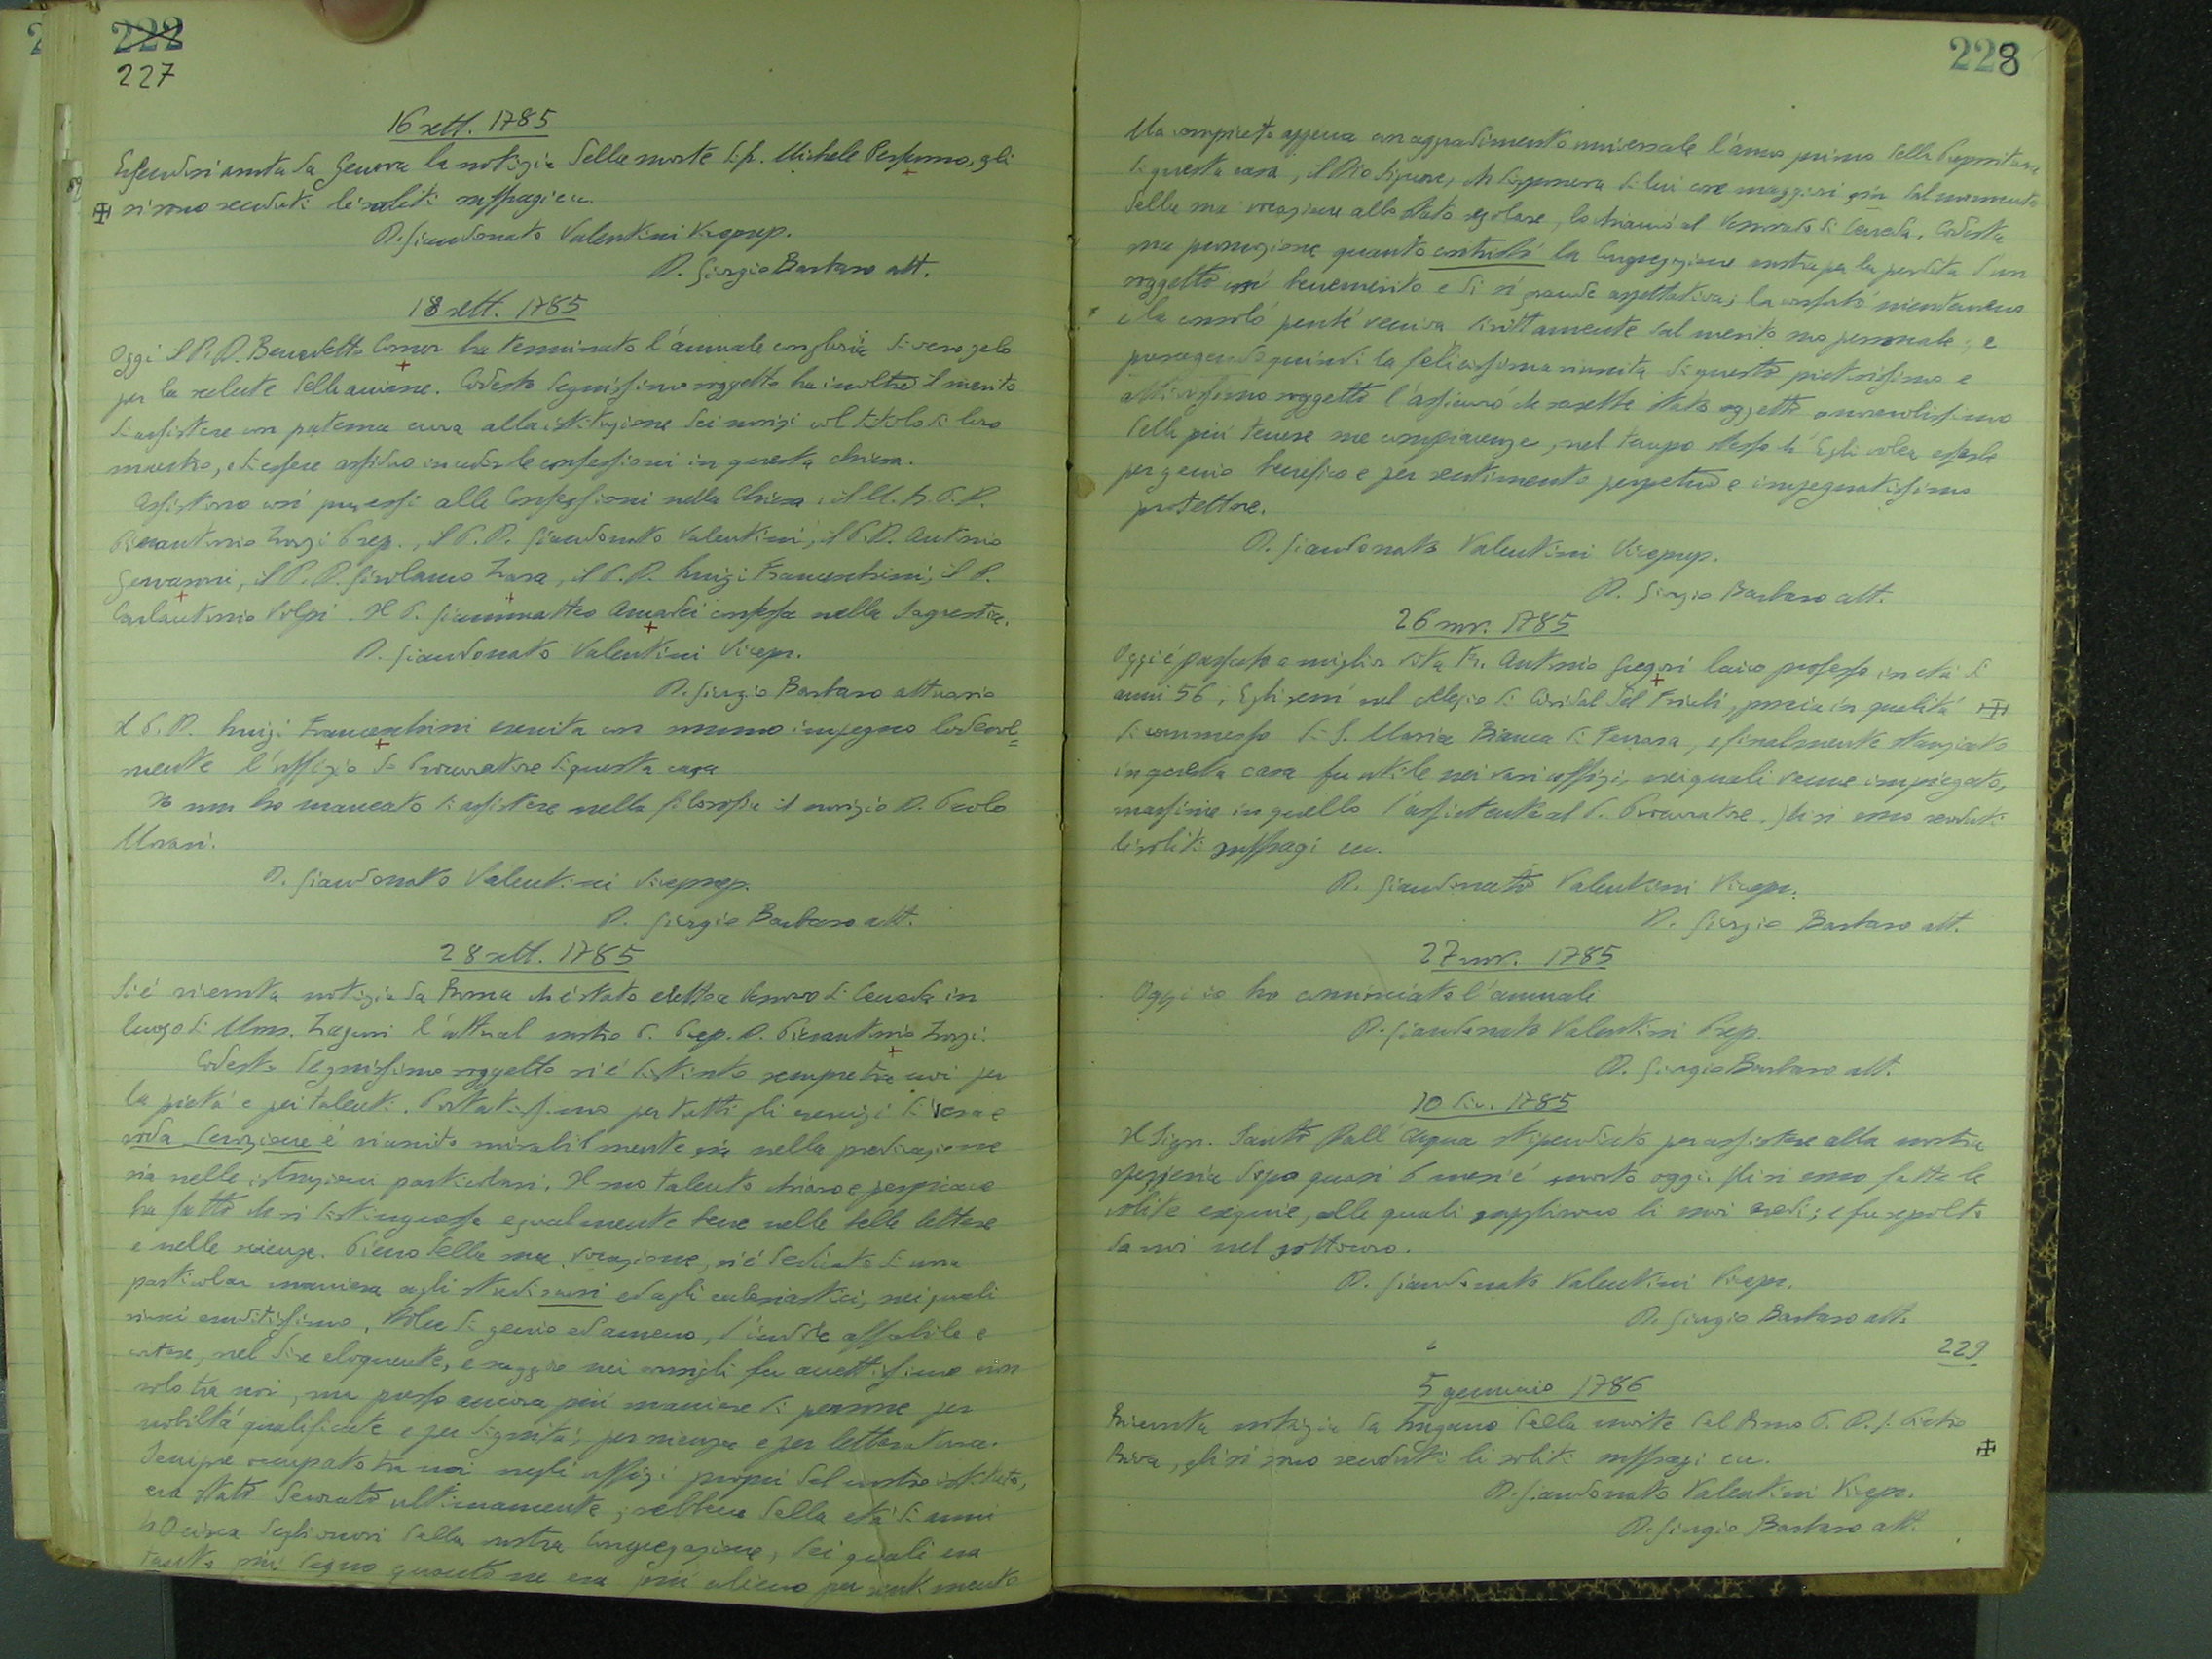 222
227
16 sett. 1785
Essendosi avuta da Genova la notizia della morte di p. Michele Perfumo, gli
si sono renduti li soliti suffragi ecc.
D. Giandonato Valentini Viceprep.
D. Giorgio Barbaro att.
18 sett. 1785
Oggi il P. D. Benedetto Comor ha terminato l'annuale con gloria di vero zelo
per la salute delle anime. Codesto degnissimo soggetto ha inoltre il merito
di assistere con paterna cura alla istituzione dei novizi col titolo di loro
maestro, e di essere assiduo in udir le confessioni in questa chiesa.
Assistono così pur essi alle Confessioni nella Chiesa: il M. R. P. D.
Pierantonio Zorzi Prep., il P. D. Giandonato Valentini, il P. D. Antonio
Gervasoni, il P. D. Girolamo Zara, il P. D. Luigi Franceschini, il P.
Carlantonio Volpi. Il P. Giammatteo Amadei confessa nella Sagrestia.
D. Giandonato Valentini Vicepr.
D. Giorgio Barbaro attuario
Il P. D. Luigi Franceschini esercita con sommo impegno lodevol=
mente l'uffizio di Procuratore di questa casa
Io non ho mancato di assistere nella filosofia il novizio D. Paolo
Morari.
D. Giandonato Valentini Viceprep.
D. Giorgio Barbaro att.
28 sett. 1785
Si è ricevuta notizia da Roma ch'è stato eletto a Vescovo di Ceneda in
luogo di Mons. Zaguri l'attual nostro P. Prep. D. Pierantonio Zorzi.
Codesto degnissimo soggetto si è distinto sempre tra noi per
la pietà e pei talenti. Portatissimo per tutti gli esercizi di vera e
soda devozione è riuscito mirabilmente sia nella predicazione
sia nelle istruzioni particolari. Il suo talento chiaro e perspicace
ha fatto che si distinguesse egualmente bene nelle belle lettere
e nelle scienze. Pieno della sua vocazione, si è dedicato di una
particolar maniera agli studi sacri ed agli ecclesiastici, nei quali
riuscì eruditissimo. Nobile di genio ed ameno, d'indole affabile e
cortese, nel dire eloquente, e saggio nei consigli fu accettissimo non
solo tra noi, ma presso ancora più maniere di persone per
nobiltà qualificate e per dignità, per scienza e per letteratura.
Sempre occupato tra noi negli uffizi propri del nostro istituto,
era stato decorato ultimamente, sebbene della età di anni
40 circa degli onori della nostra Congregazione, dei quali era
tanto più degno quanto ne era più alieno per sentimento
228
Ma compiuto appena con aggradimento universale l'anno primo della Prepositura
di questa casa, il Dio Signore, che disponeva di lui cose maggiori sin dal momento
della sua vocazione allo stato regolare, lo chiamò al Vescovado di Ceneda. Codesta
sua promozione quanto contristò la Congregazione nostra per la perdita d'un
soggetto così benemerito e di sì grande aspettativa; la confortò nientemeno
e la consolò perché veniva dirittamente dal merito suo personale; e
presagendo quindi la felicissima riuscita di questo pietosissimo e
attivissimo soggetto l'assicurò che sarebbe stato oggetto onorevolissimo
della più tenere sue compiacenze, nel tempo stesso ch'Egli volea esserle
per genio benefico e per sentimento perpetuo e impegnatissimo
protettore.
D. Giandonato Valentini Viceprep.
D. Giorgio Barbaro att.
26 nov. 1785
Oggi è passato a miglior vita Fr. Antonio Gregori laico professo in età di
anni 56. Egli servì nel collegio di Cividal del Friuli, poscia in qualità
di commesso di S. Maria Bianca di Ferrara, e finalmente stanziato
in questa casa fu utile nei vari uffizi, nei quali venne impiegato,
massime in quello d'assistente al P. Procuratore. Gli si sono renduti
li soliti suffragi ecc.
D. Giandonato Valentini Vicepr.
D. Giorgio Barbaro att.
27 nov. 1785
Oggi io ho cominciato l'annuale
D. Giandonato Valentini Prep.
D. Giorgio Barbaro att.
10 dic. 1785
Il Sign. Santo Dall'Acqua stipendiato per assistere alla nostra
spezieria dopo quasi 6 mesi è morto oggi. Gli si sono fatte le
solite esequie, alle quali supplirono li suoi eredi; e fu sepolto
da noi nel sottocoro.
D. Giandonato Valentini Vicepr.
D. Giorgio Barbaro att.
229
5 gennaio 1786
Ricevuta notizia da Lugano della morte del Rmo P. D. G. Pietro
Riva, gli si sono renduti li soliti suffragi ecc.
D. Giandonato Valentini Vicepr.
D. Giorgio Barbaro att.